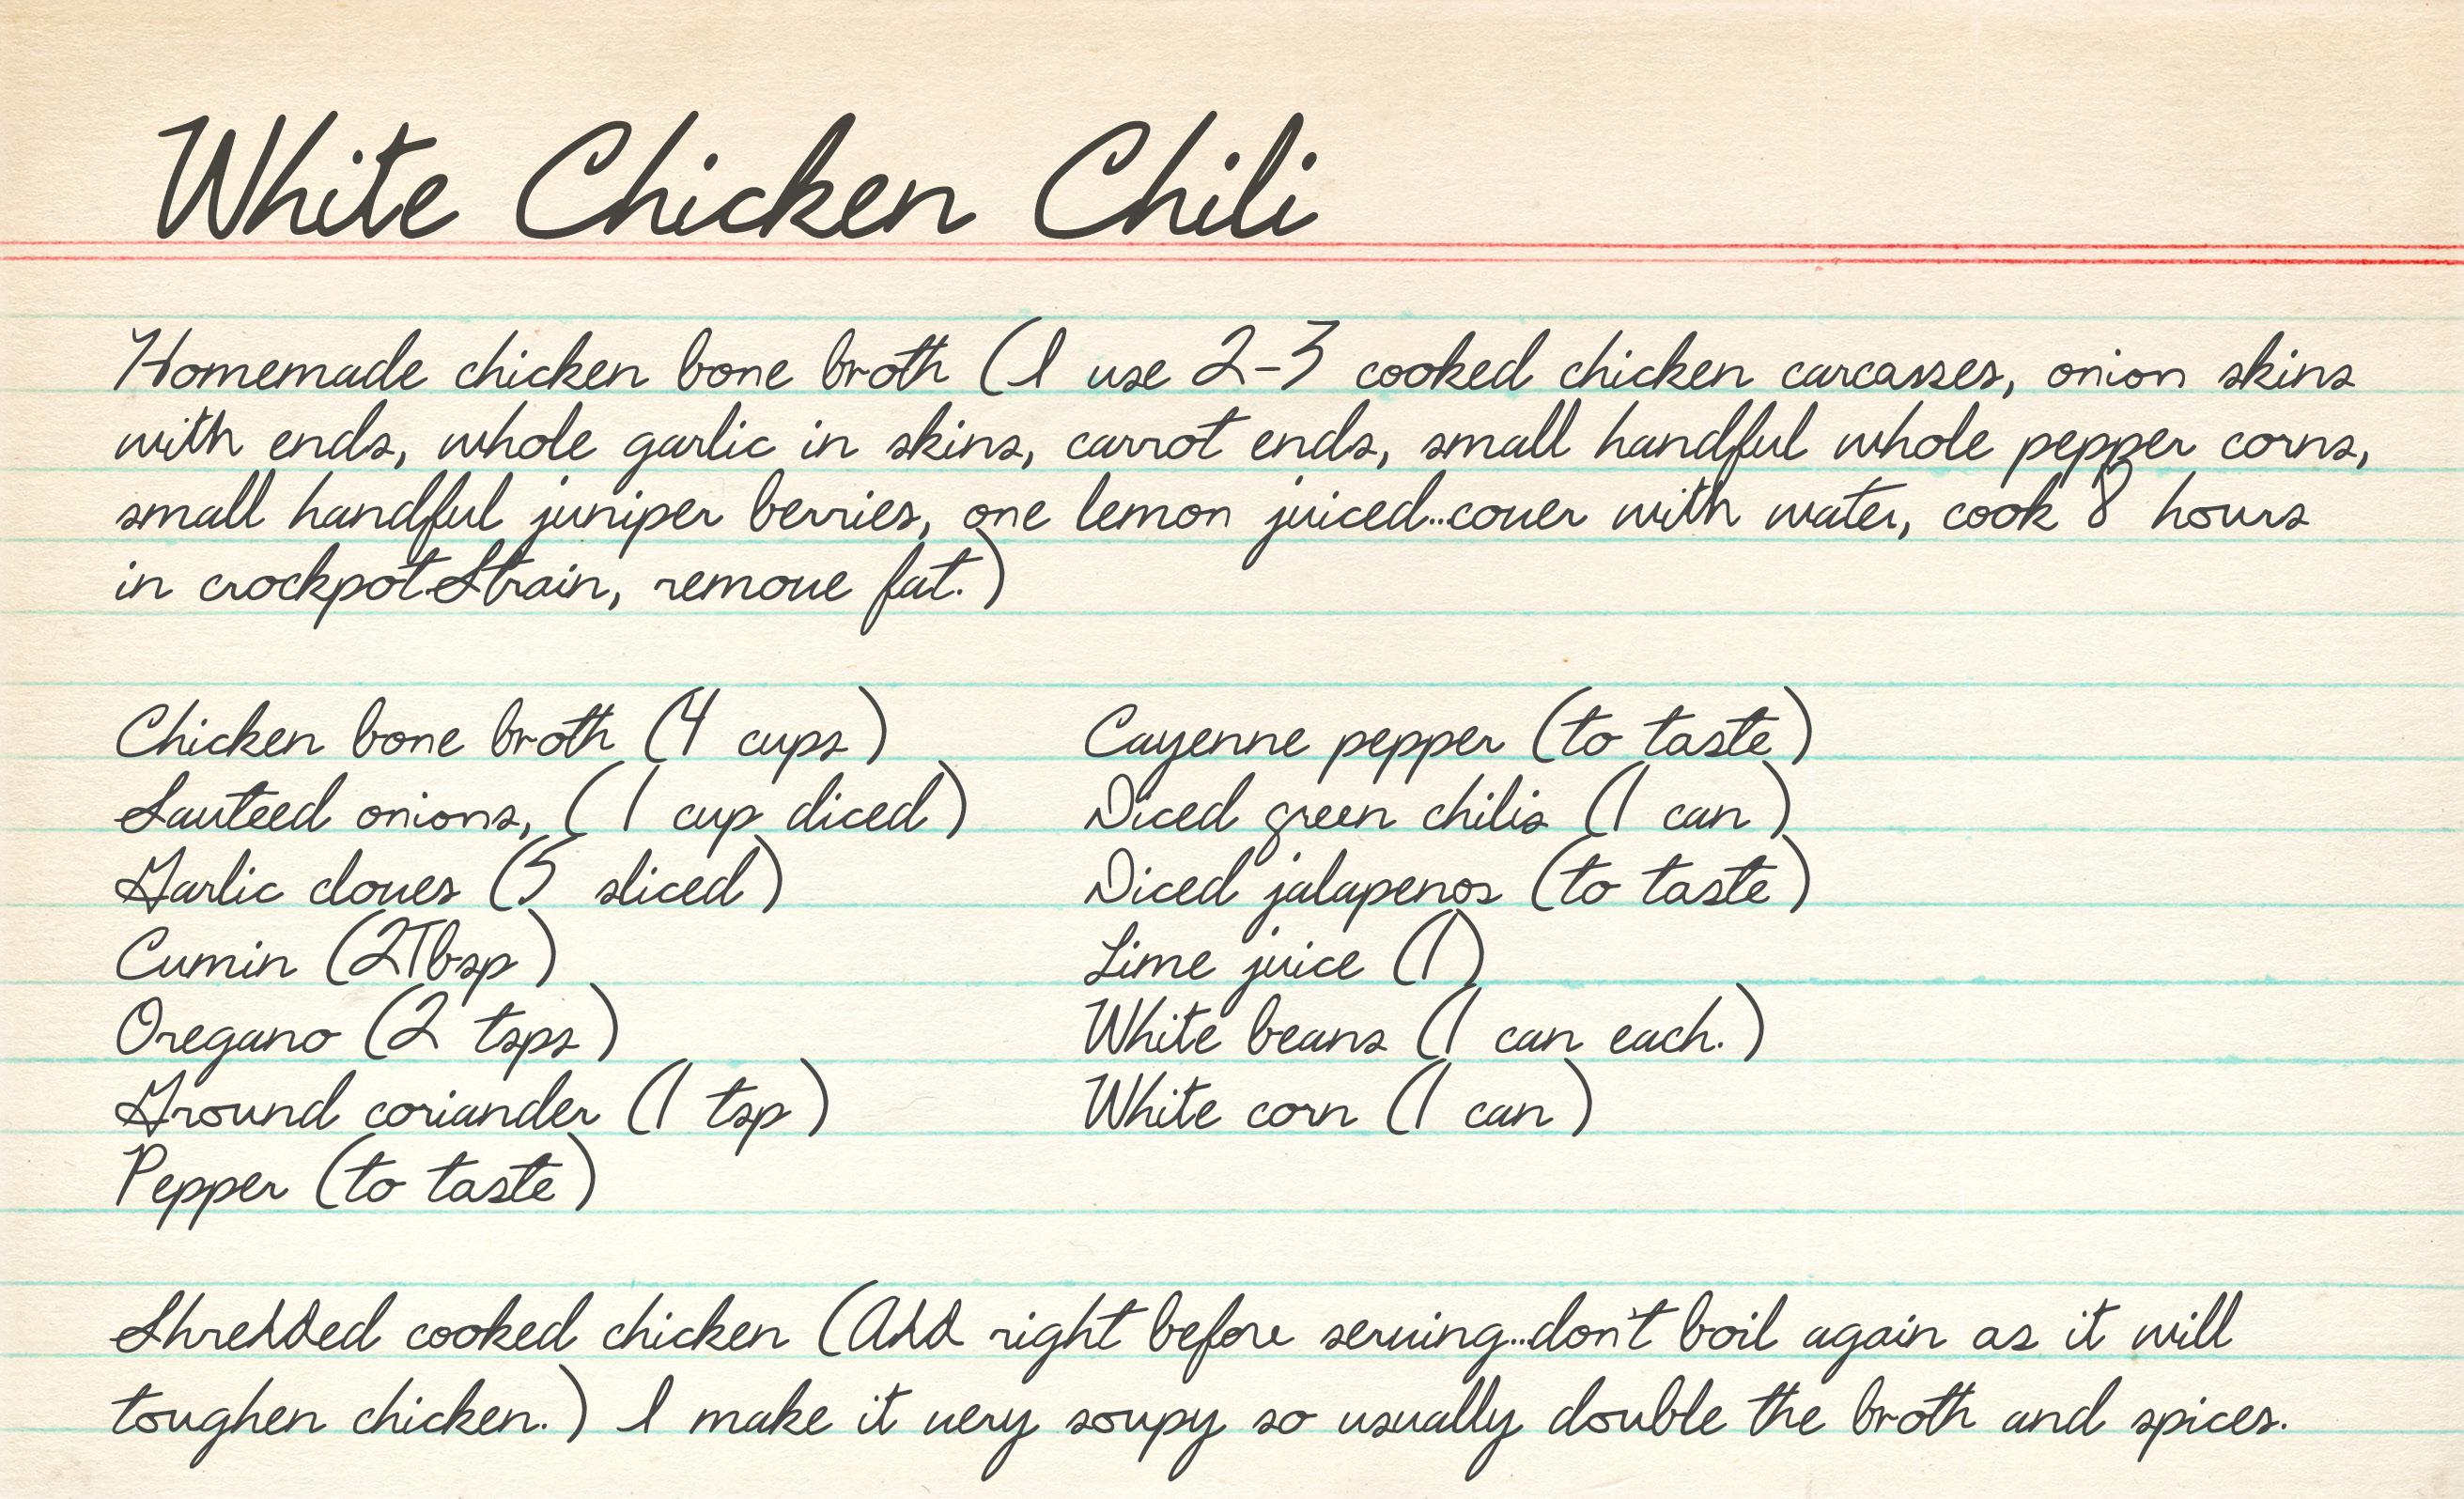 White Chicken Chili
Homemade chicken bone broth (I use 2-3 cooked chicken carcasses, onion skins
with ends, whole garlic in skins, carrot ends, small handful whole pepper corns,
small handful juniper berries, one lemon juiced...cover with water, cook 8 hours
in crockpot.Strain, remove fat.)
Chicken bone broth (4 cups)
Sauteed onions, ( 1 cup diced)
Garlic cloves (5 sliced)
Cumin (2Tbsp)
Oregano (2 tsps)
Ground coriander (1 tsp)
Pepper (to taste)
Cayenne pepper (to taste)
Diced green chilis (1 can)
Diced jalapenos (to taste)
Lime juice (1)
White beans (1 can each.)
White corn (1 can)
Shredded cooked chicken (Add right before serving...don't boil again as it will
toughen chicken.) I make it very soupy so usually double the broth and spices.